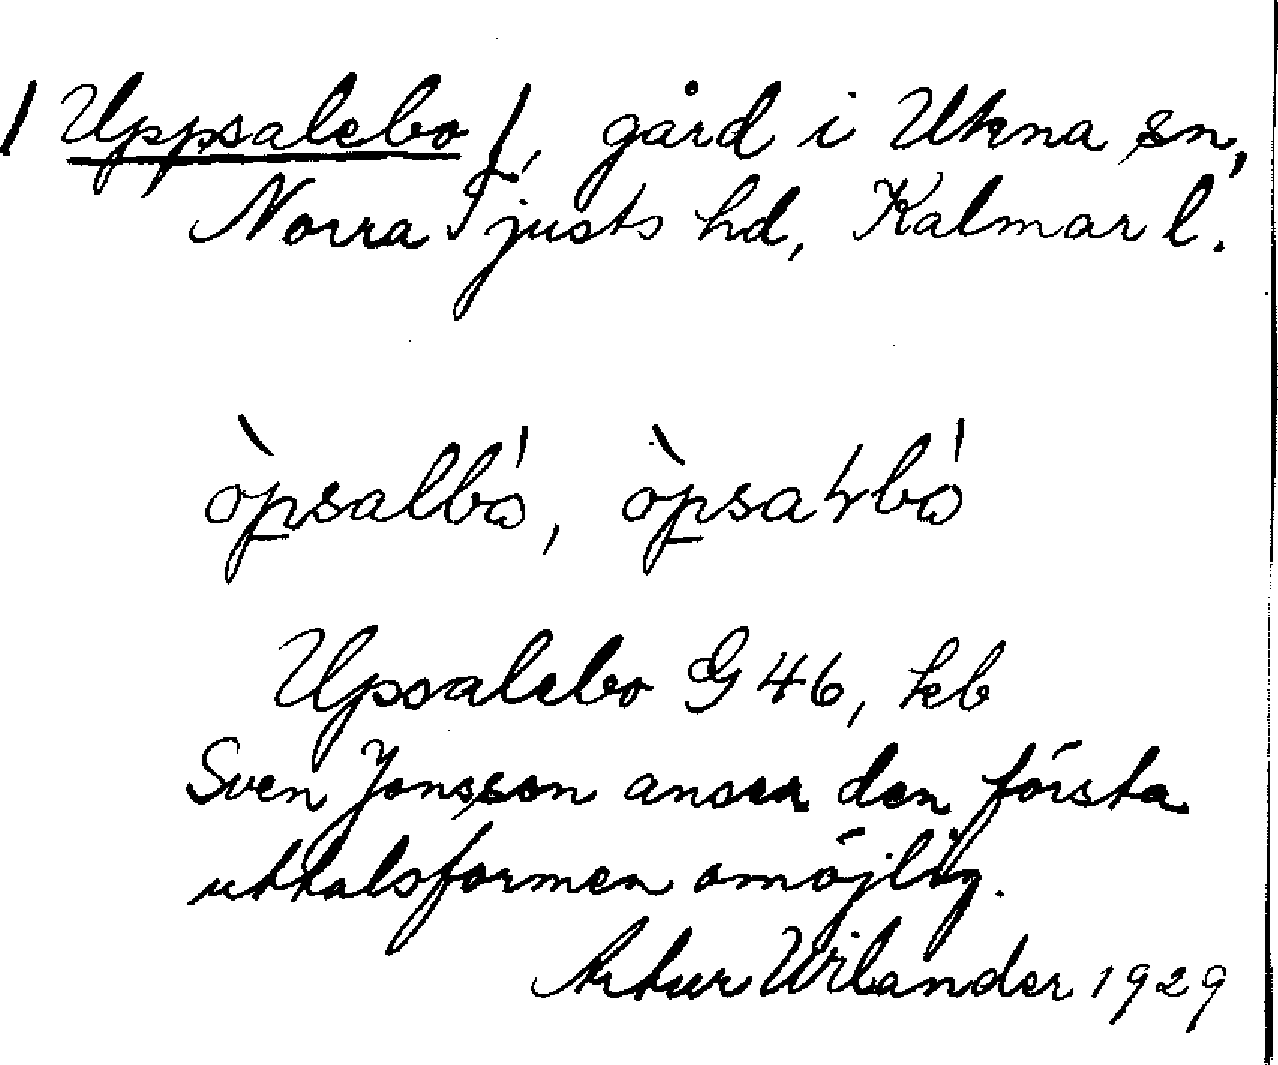 /Uppsalebo/, gård i Ukna sn,
Norra Tjusts hd, Kalmar l.
òpsalbó, òpsaɫbó
Upsalebo G 46, kb
Sven Jonsson anser den första
uttalsformen omöjlig.
Artur Wilander 1929